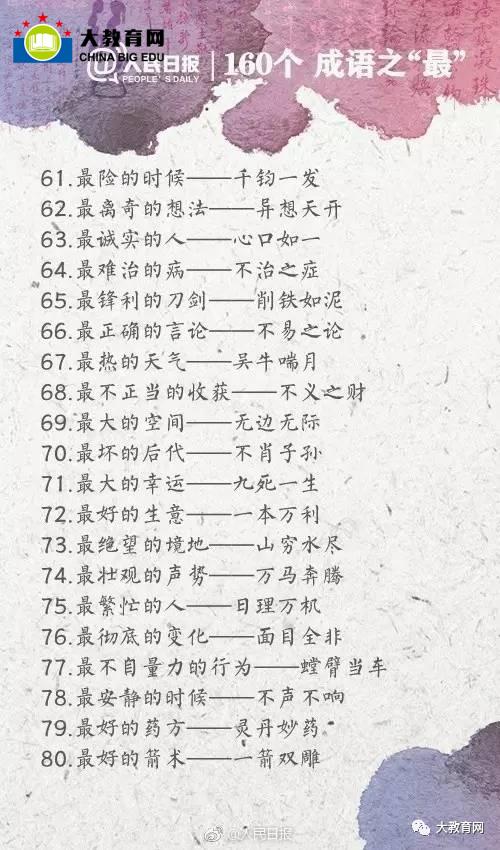 大教育网
CHINA BIG EDU
@人民日报
PEOPLE'S DAILY
160个 成语之“最”
61.最险的时候——千钧一发
62.最离奇的想法——异想天开
63.最诚实的人——心口如一
64.最难治的病——不治之症
65.最锋利的刀剑——削铁如泥
66.最正确的言论——不易之论
67.最热的天气——吴牛喘月
68.最不正当的收获——不义之财
69.最大的空间——无边无际
70.最坏的后代——不肖子孙
71.最大的幸运——九死一生
72.最好的生意——一本万利
73.最绝望的境地——山穷水尽
74.最壮观的声势——万马奔腾
75.最繁忙的人——日理万机
76.最彻底的变化——面目全非
77.最不自量力的行为——螳臂当车
78.最安静的时候——不声不响
79.最好的药方——灵丹妙药
80.最好的箭术——一箭双雕
@人民日报
大教育网